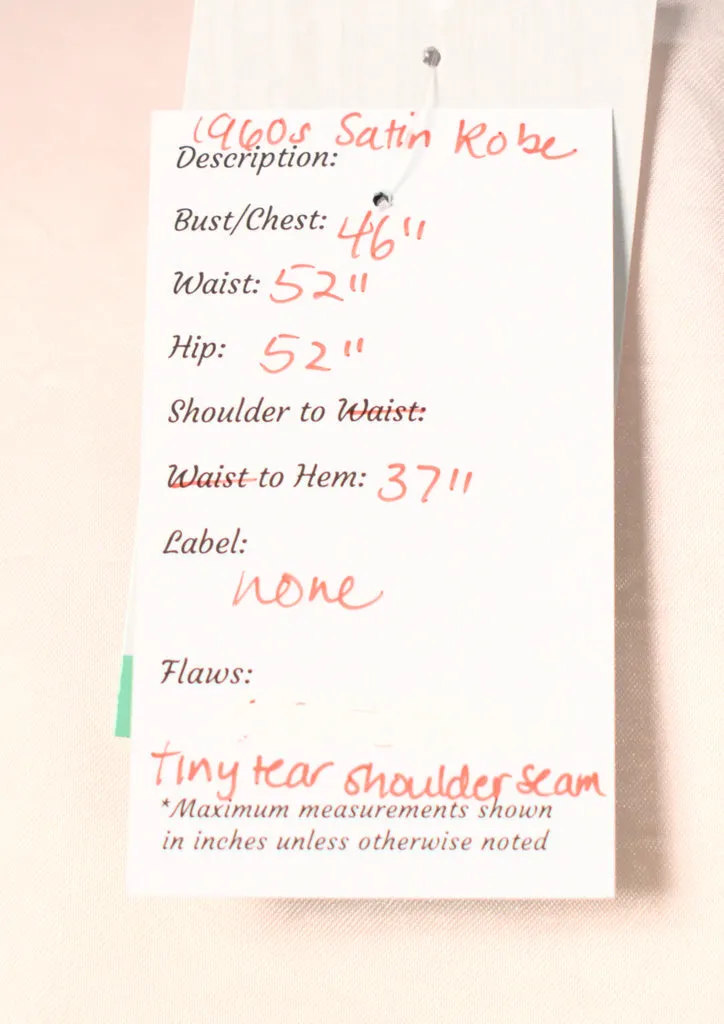 1960s Satin Robe
Description:
Bust/Chest: 46"
Waist: 52"
Hip: 52"
Shoulder to Waist:
Waist to Hem: 37"
Label:
none
Flaws:
tiny tear shoulder seam
*Maximum measurements shown
in inches unless otherwise noted